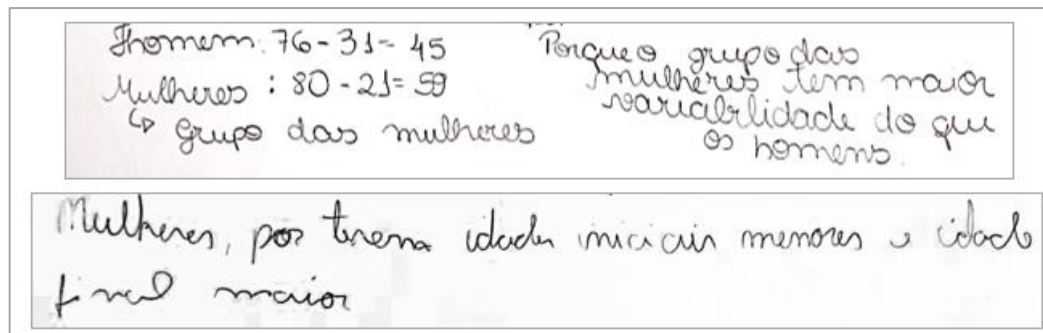 Homem: 76-31= 45
Mulheres : 80-21= 59
↳ Grupo das mulheres
Porque o grupo das
mulheres tem maior
variabilidade do que
os homens.
Mulheres, por terem idades iniciais menores e idade
final maior